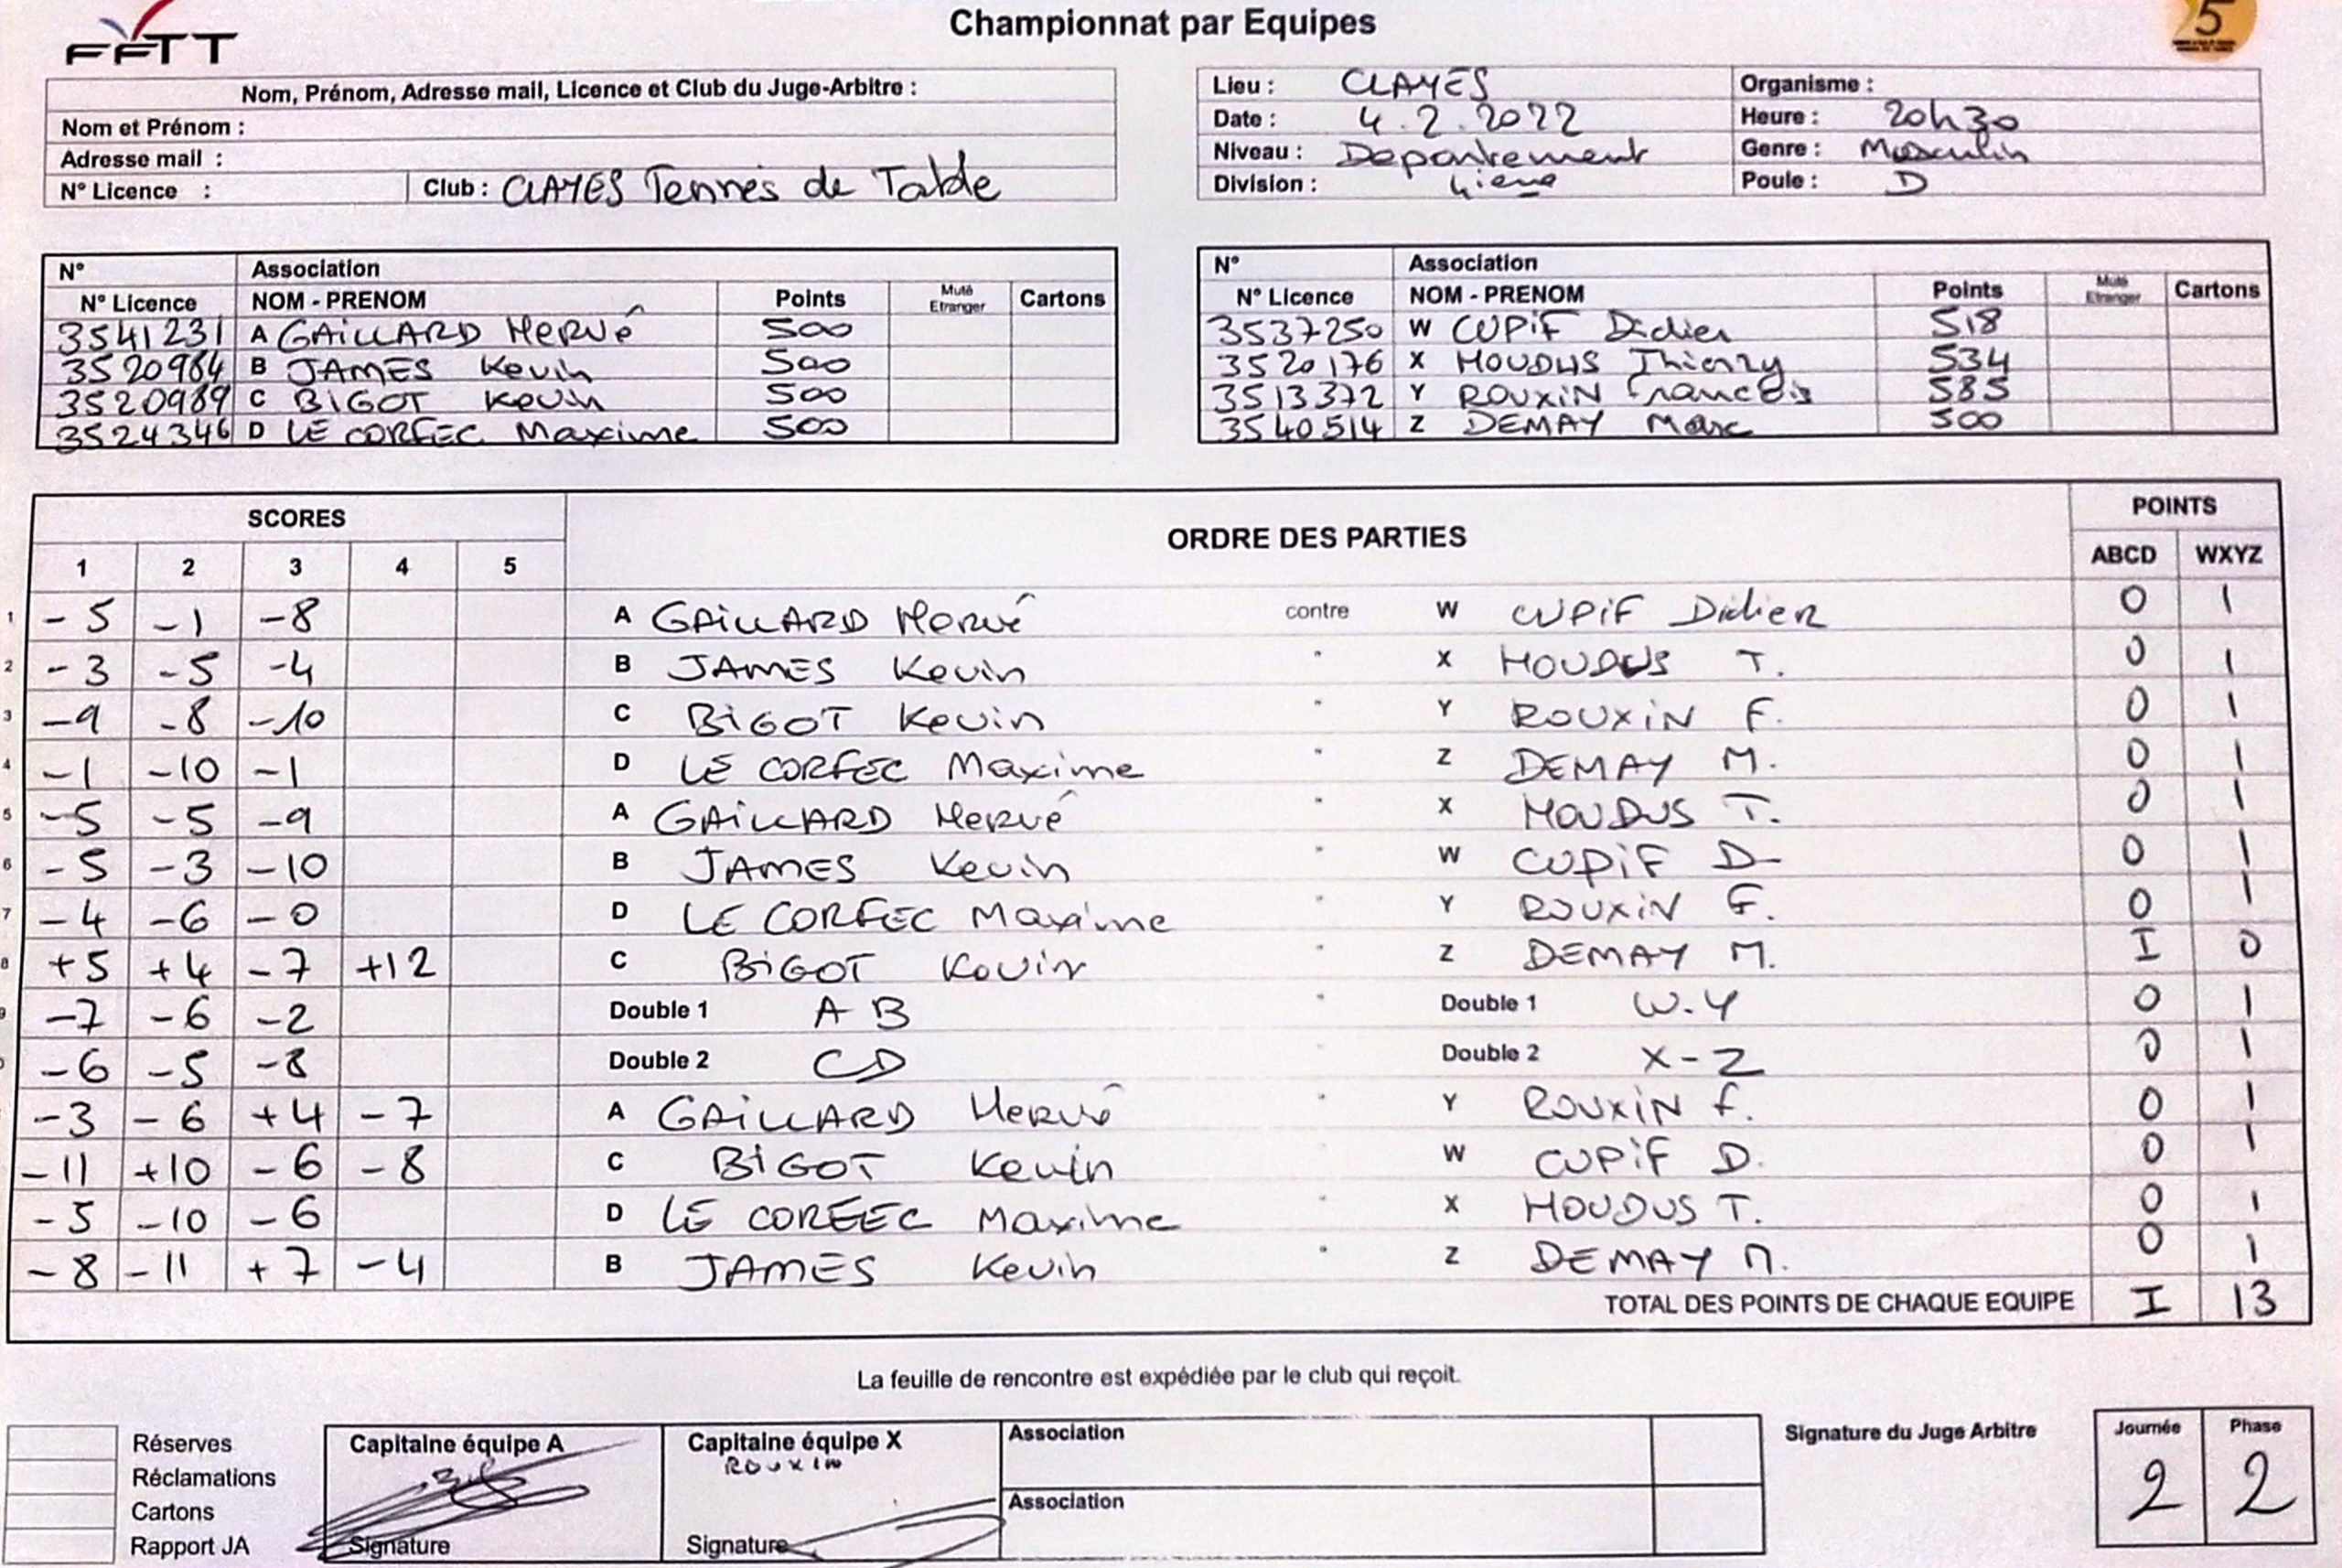 FFTT
Championnat par Equipes
5
Nom, Prénom, Adresse mail, Licence et Club du Juge-Arbitre :
Nom et Prénom :
Adresse mail :
N° Licence : Club : CLAYES Tennis de Table
Lieu : CLAYES Organisme :
Date : 4.2.2022 Heure : 20h30
Niveau : Departement Genre : Masculin
Division : 4ieme Poule : D
N° Association
N° Licence NOM - PRENOM Points Muté Etranger Cartons
3541231 A GAILLARD Hervé 500
3520984 B JAMES Kevin 500
3520989 C BIGOT Kevin 500
3524346 D LE CORFEC Maxime 500
N° Association
N° Licence NOM - PRENOM Points Muté Etranger Cartons
3537250 W CUPIF Didier 518
3520176 X HOUDUS Thierry 534
3513372 Y ROUXIN Francois 585
3540514 Z DEMAY Marc 500
SCORES ORDRE DES PARTIES POINTS
1 2 3 4 5 ABCD WXYZ
1 -5 -1 -8 A GAILLARD Hervé contre W CUPIF Didier 0 1
2 -3 -5 -4 B JAMES Kevin " X HOUDUS T. 0 1
3 -9 -8 -10 C BIGOT Kevin " Y ROUXIN F. 0 1
4 -1 -10 -1 D LE CORFEC Maxime " Z DEMAY M. 0 1
5 -5 -5 -9 A GAILLARD Hervé " X HOUDUS T. 0 1
6 -5 -3 -10 B JAMES Kevin " W CUPIF D- 0 1
7 -4 -6 -0 D LE CORFEC Maxime " Y ROUXIN F. 0 1
8 +5 +4 -7 +12 C BIGOT Kevin " Z DEMAY M. I 0
9 -7 -6 -2 Double 1 A B " Double 1 W.Y 0 1
-6 -5 -8 Double 2 CD " Double 2 X-Z 0 1
-3 -6 +4 -7 A GAILLARD Hervé " Y ROUXIN F. 0 1
-11 +10 -6 -8 C BIGOT Kevin " W CUPIF D. 0 1
-5 -10 -6 D LE CORFEC Maxime " X HOUDUS T. 0 1
-8 -11 +7 -4 B JAMES Kevin " Z DEMAY M. 0 1
TOTAL DES POINTS DE CHAQUE EQUIPE I 13
La feuille de rencontre est expédiée par le club qui reçoit.
Réserves
Réclamations
Cartons
Rapport JA
Capitaine équipe A
Signature
Capitaine équipe X
ROUXIN
Signature
Association
Association
Signature du Juge Arbitre
Journée Phase
2 2